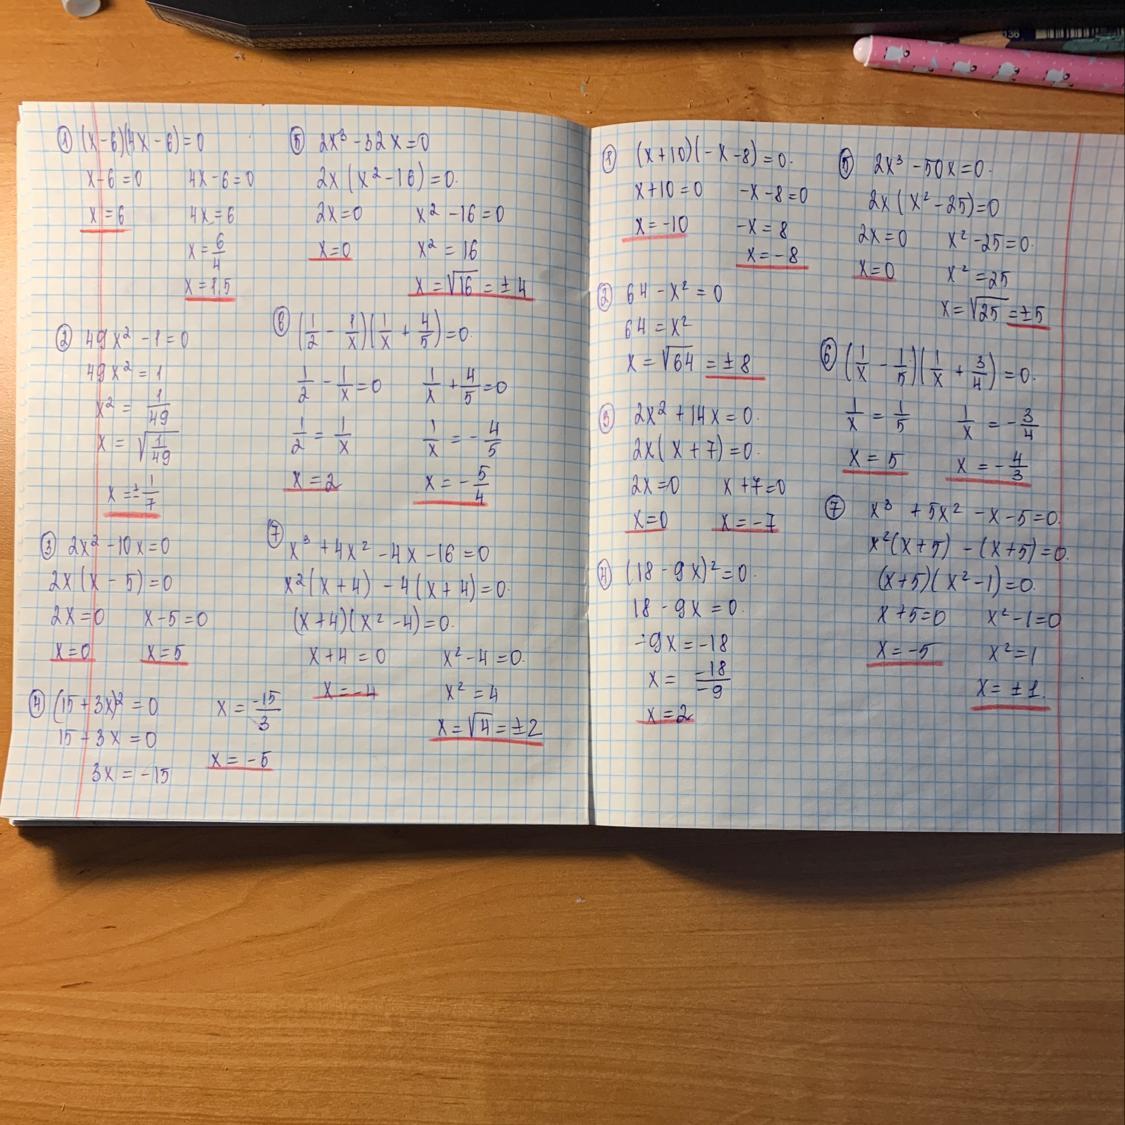 ① (x-6)(4x-6)=0
x-6=0 4x-6=0
x=6 4x=6
x=6/4
x=1,5
② 49x²-1=0
49x²=1
x²=1/49
x=√(1/49)
x=±1/7
③ 2x²-10x=0
2x(x-5)=0
2x=0 x-5=0
x=0 x=5
④ (15+3x)²=0
15+3x=0
3x=-15
x=-15/3
x=-5
⑤ 2x³-32x=0
2x(x²-16)=0.
2x=0 x²-16=0
x=0 x²=16
x=√16=±4
⑥ (1/2-1/x)(1/x+4/5)=0.
1/2-1/x=0 1/x+4/5=0
1/2=1/x 1/x=-4/5
x=2 x=-5/4
⑦ x³+4x²-4x-16=0
x²(x+4)-4(x+4)=0.
(x+4)(x²-4)=0.
x+4=0 x²-4=0.
x=-4 x²=4
x=√4=±2
① (x+10)(-x-8)=0.
x+10=0 -x-8=0
x=-10 -x=8
x=-8
② 64-x²=0
64=x²
x=√64=±8
③ 2x²+14x=0.
2x(x+7)=0.
2x=0 x+7=0
x=0 x=-7
④ (18-9x)²=0.
18-9x=0.
-9x=-18
x=-18/-9
x=2
⑤ 2x³-50x=0.
2x(x²-25)=0
2x=0 x²-25=0.
x=0 x²=25
x=√25=±5
⑥ (1/x-1/5)(1/x+3/4)=0.
1/x=1/5 1/x=-3/4
x=5 x=-4/3
⑦ x³+5x²-x-5=0
x²(x+5)-(x+5)=0.
(x+5)(x²-1)=0.
x+5=0 x²-1=0
x=-5 x²=1
x=±1.